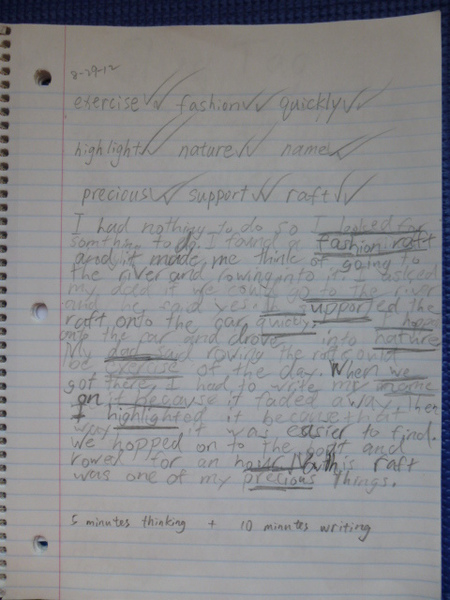 8-29-12
exercise fashion quickly
highlight nature name
precious support raft
I had nothing to do so I looked for
somthing to do. I found a fashion raft
and it made me think of going to
the river and rowing into it. I asked
my dad if we could go to the river
and he said yes. I supported the
raft onto the car quickly. I hopped
into the car and drove into nature.
My dad said rowing the raft could
be exercise of the day. When we
got there, I had to write my name
on it because it faded away, then
I highlighted it because that
way it was easier to find.
We hopped on to the and
rowed for an hour. This raft
was one of my precious things.
5 minutes thinking + 10 minutes writing